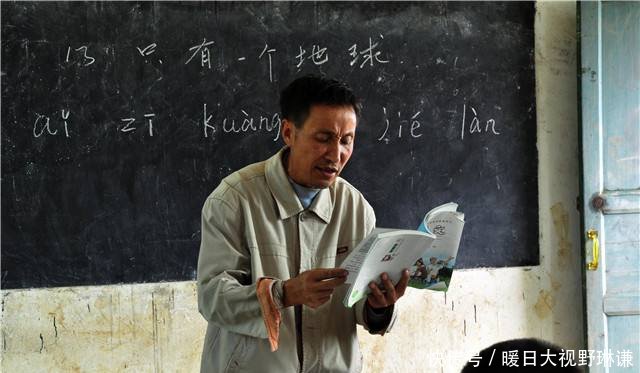 13 只有一个地球
āi zī kuàng jié làn
快传号 / 暖日大视野琳谦